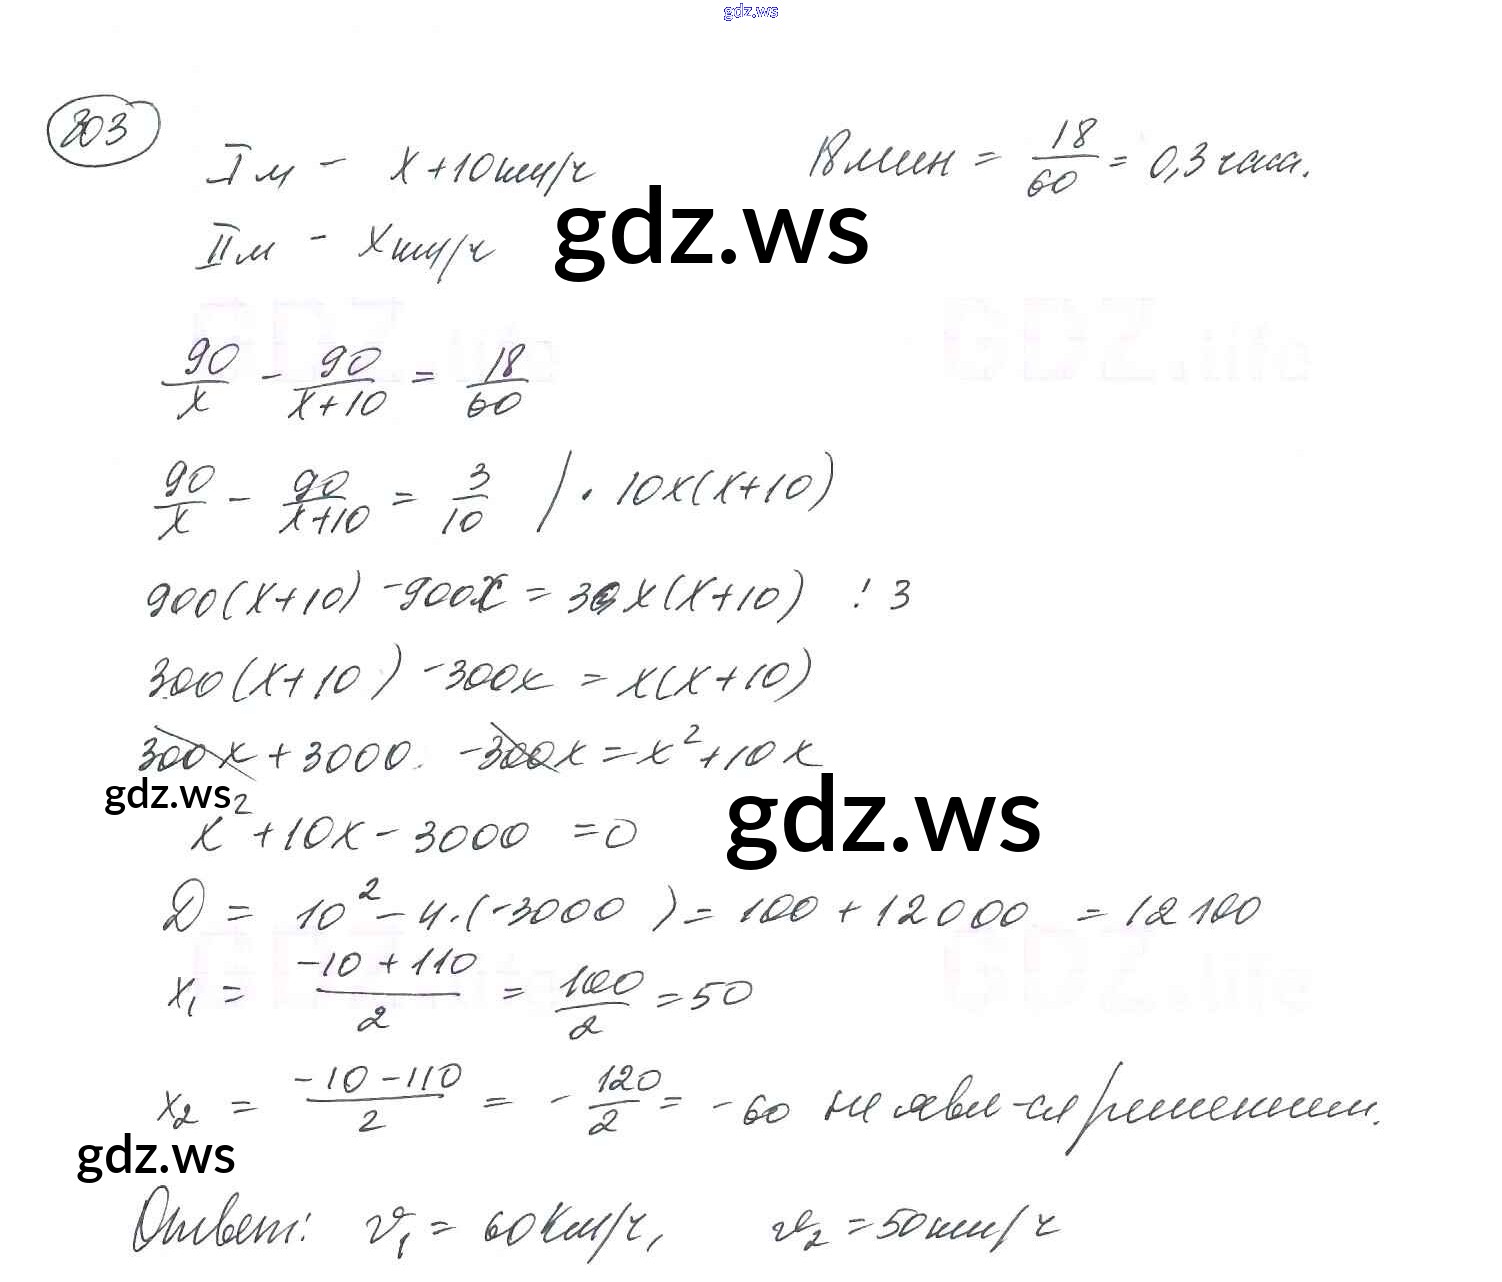 gdz.ws
803
I м - x+10км/ч 18мин = 18/60 = 0,3 часа.
II м - x км/ч
gdz.ws
GDZ.life GDZ.life
90/x - 90/(x+10) = 18/60
90/x - 90/(x+10) = 3/10 | · 10x(x+10)
900(x+10) - 900x = 3x(x+10) : 3
300(x+10) - 300x = x(x+10)
300x + 3000 - 300x = x² + 10x
gdz.ws
x² + 10x - 3000 = 0
gdz.ws
D = 10² - 4·(-3000) = 100 + 12000 = 12100
GDZ.life GDZ.life
x₁ = (-10 + 110)/2 = 100/2 = 50
x₂ = (-10 - 110)/2 = - 120/2 = - 60 не явл-ся решением.
gdz.ws
Ответ: v₁ = 60км/ч, v₂ = 50км/ч